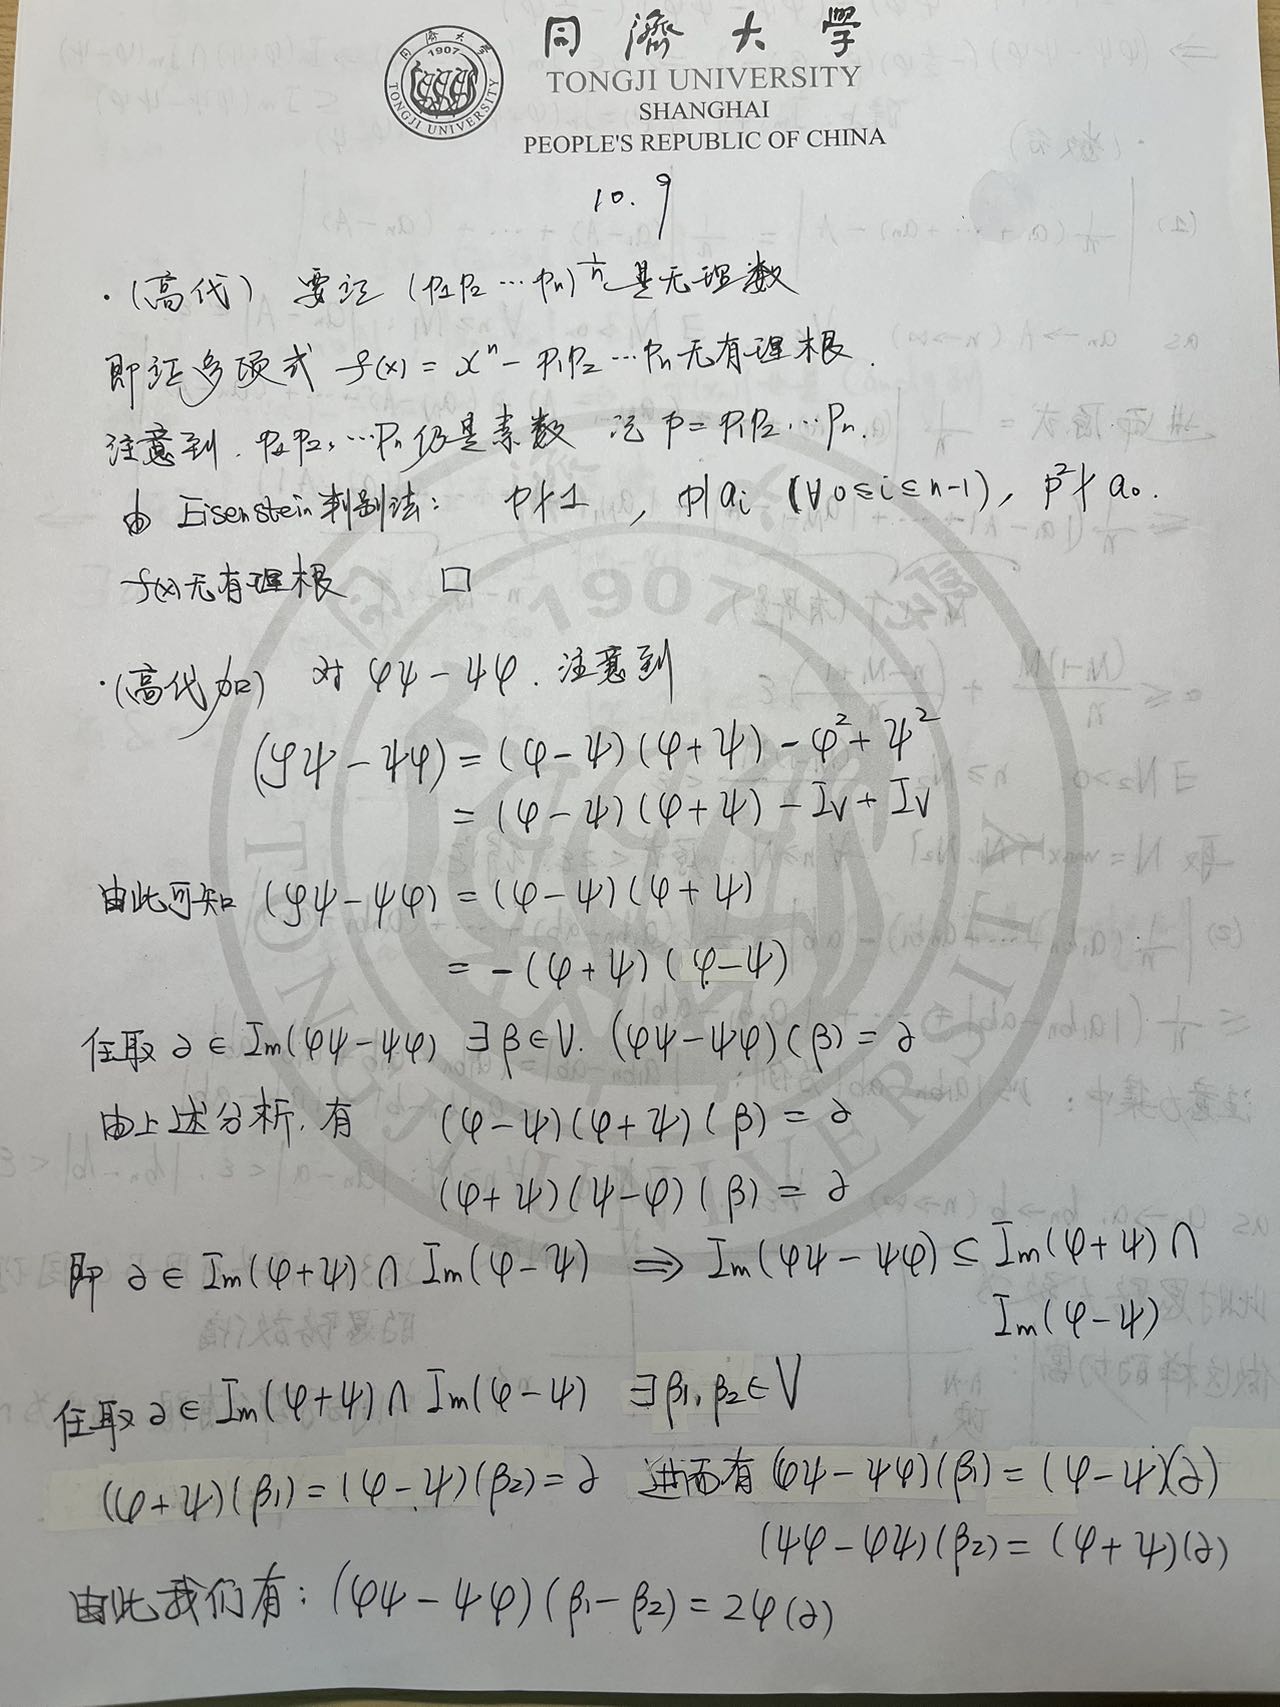 同濟大學
TONGJI UNIVERSITY
SHANGHAI
PEOPLE'S REPUBLIC OF CHINA
同濟大學
1907
TONGJI UNIVERSITY
10.9
·(高代) 要证 (p₁p₂…pₙ)^(1/n) 是无理数
即证多项式 f(x) = xⁿ - p₁p₂…pₙ 无有理根.
注意到. p₁p₂,…pₙ仍是素数 记 p = p₁p₂…pₙ.
由 Eisenstein判别法: p∤1 , p|aᵢ (∀0≤i≤n-1), p²∤a₀.
f(x)无有理根 □
·(高代加) 对 φψ-ψφ. 注意到
(φψ-ψφ) = (φ-ψ)(φ+ψ) - φ² + ψ²
= (φ-ψ)(φ+ψ) - Iv + Iv
由此可知 (φψ-ψφ) = (φ-ψ)(φ+ψ)
= -(φ+ψ)(φ-ψ)
任取 ∂ ∈ Im(φψ-ψφ) ∃β∈V. (φψ-ψφ)(β) = ∂
由上述分析, 有 (φ-ψ)(φ+ψ)(β) = ∂
(φ+ψ)(ψ-φ)(β) = ∂
即 ∂ ∈ Im(φ+ψ) ∩ Im(φ-ψ) ⇒ Im(φψ-ψφ) ⊆ Im(φ+ψ) ∩
Im(φ-ψ)
任取 ∂ ∈ Im(φ+ψ) ∩ Im(φ-ψ) ∃β₁,β₂∈V
(φ+ψ)(β₁) = (φ-ψ)(β₂) = ∂ 进而有 (φψ-ψφ)(β₁) = (φ-ψ)(∂)
(ψφ-φψ)(β₂) = (φ+ψ)(∂)
由此我们有: (φψ-ψφ)(β₁-β₂) = 2φ(∂)